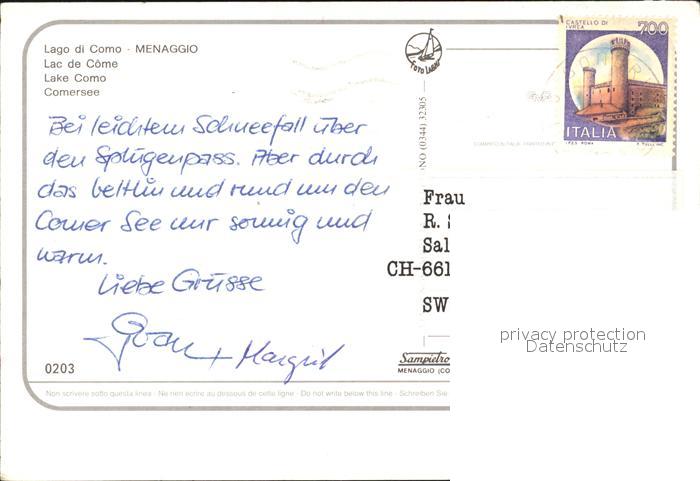 Lago di Como - MENAGGIO
Lac de Côme
Lake Como
Comersee
Bei leichtem Schneefall über
den Splügenpass. Aber durch
das Veltlin und rund um den
Comer See nur sonnig und
warm.
Liebe Grüsse
+ Margrit
0203
Non scrivere sotto questa linea - Ne rien écrire au dessous de cette ligne - Do not write below this line - Schreiben Sie
FOTO
NO (0344) 32305
CASTELLO DI
IVREA
700
ITALIA
I.P.Z.S. ROMA
Frau
R. S
Sal
CH-661
SW
Sampietro
MENAGGIO (CO
privacy protection
Datenschutz